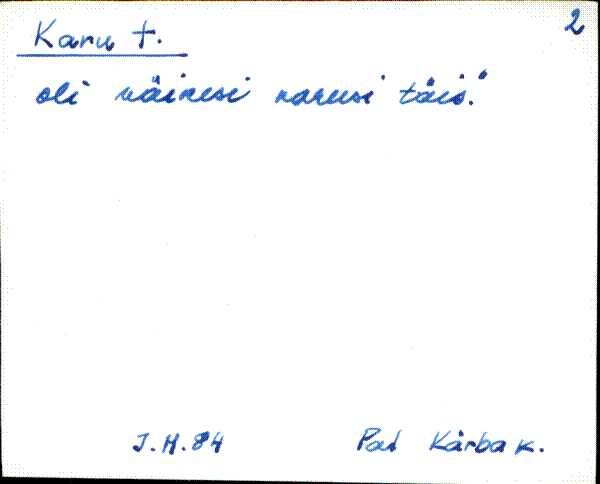 2
Karu t.
oli väikesi karusi täis."
J.H.84 Pal Kärba k.